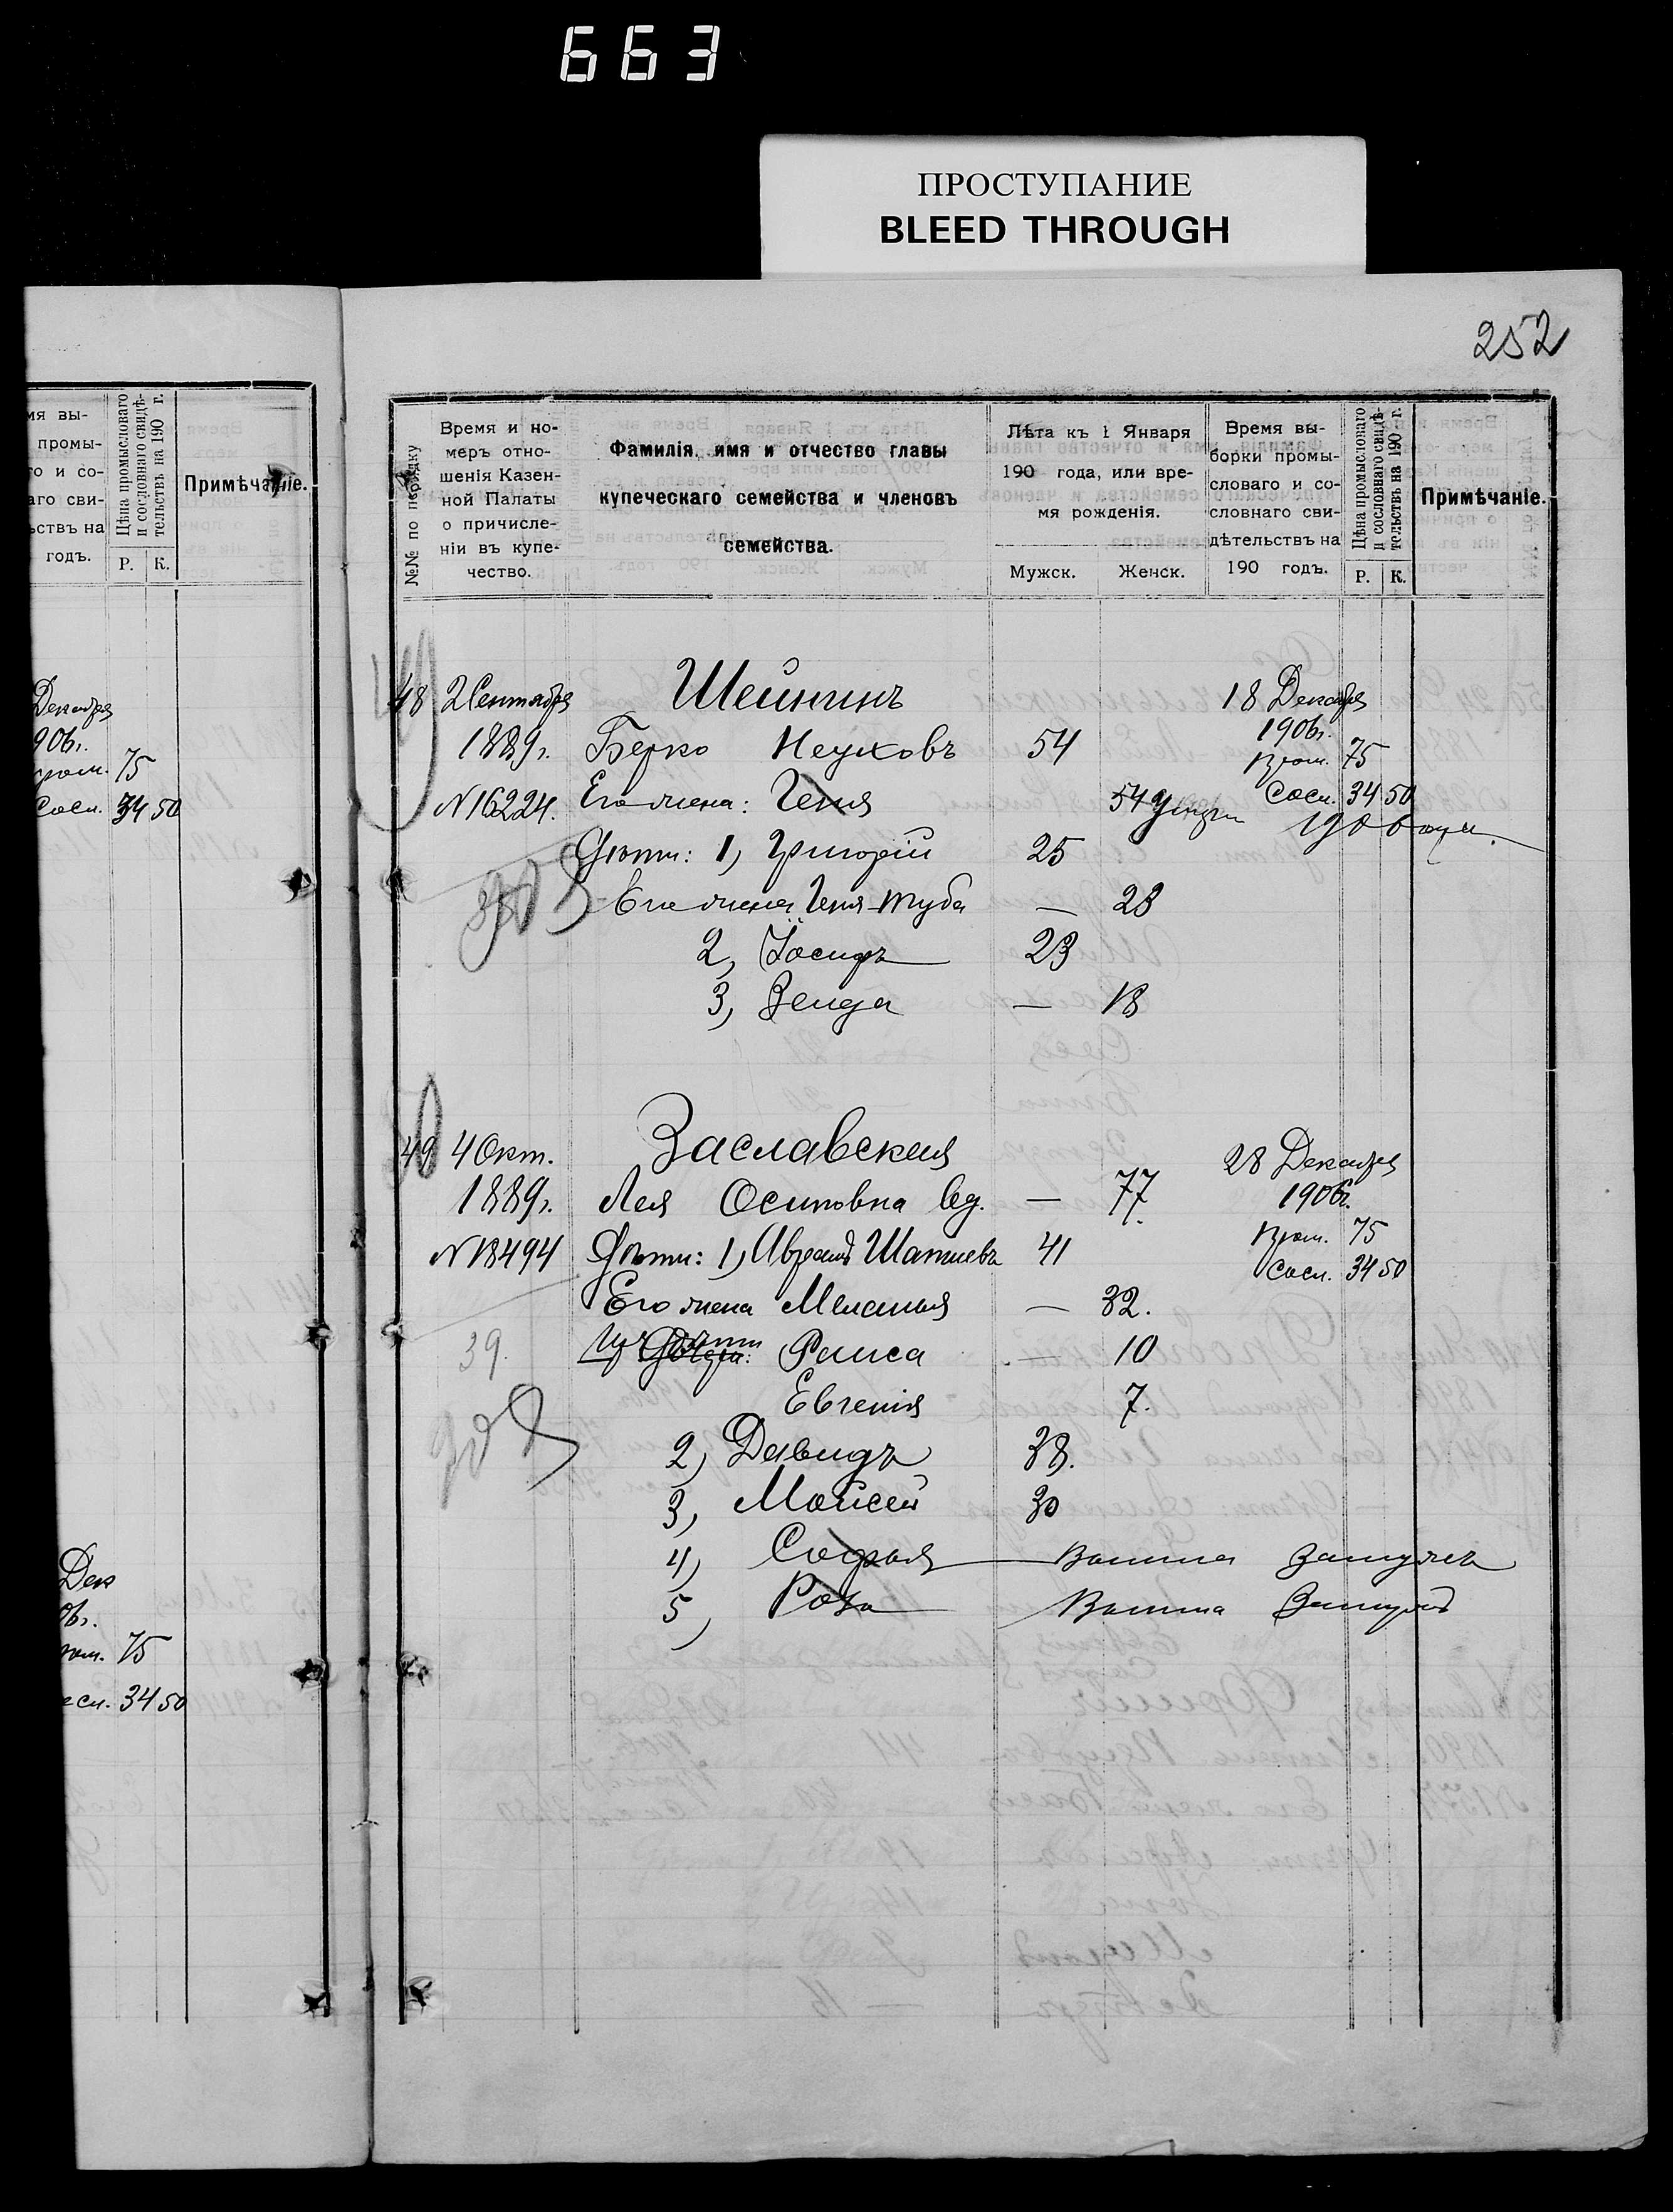 663
ПРОСТУПАНИЕ
BLEED THROUGH
252
мя вы-
промы-
го и со-
аго сви-
ьствъ на
годъ.
Цѣна промысловаго
и сословнаго свидѣ-
тельствъ на 190 г.
Р. К.
Примѣчаніе.
Декабря
906г.
пром. 75
Сосл. 34 50
Дек
06г.
ром. 75
осл. 34 50
№№ по порядку
Время и но-
меръ отно-
шенія Казен-
ной Палаты
о причисле-
ніи въ купе-
чество.
Фамилія, имя и отчество главы
купеческаго семейства и членовъ
семейства.
Лѣта къ 1 Января
190 года, или вре-
мя рожденія.
Мужск. Женск.
Время вы-
борки промы-
словаго и со-
словнаго сви-
дѣтельствъ на
190 годъ.
Цѣна промысловаго
и сословнаго свидѣ-
тельствъ на 190 г.
Р. К.
Примѣчаніе.
48 2 Сентября Шейнинъ 18 Декабря
1889г. Берко Неуховъ 54 1906г.
Пром. 75
№16224. Его жена: Геня 54 Сосл. 34 50
Дѣти: 1, Григорій 25
Его жена Геня-Туба — 23
2, Іосифъ 23
3, Зелда — 18
49 4 Окт. Заславская 28 Декабря
1889г. Лея Осиповна вд. — 77. 1906г.
Пром. 75
№18494 Дѣти: 1, Абрамъ Шапшевъ 41 Сосл. 34 50
Его жена Меланья — 32.
39. Ихъ дѣти Раиса — 10
Евгенія 7.
2, Давидъ 38.
3, Моисей 30
4, Софья Вышла замужъ
5, Роза Вышла Замужъ